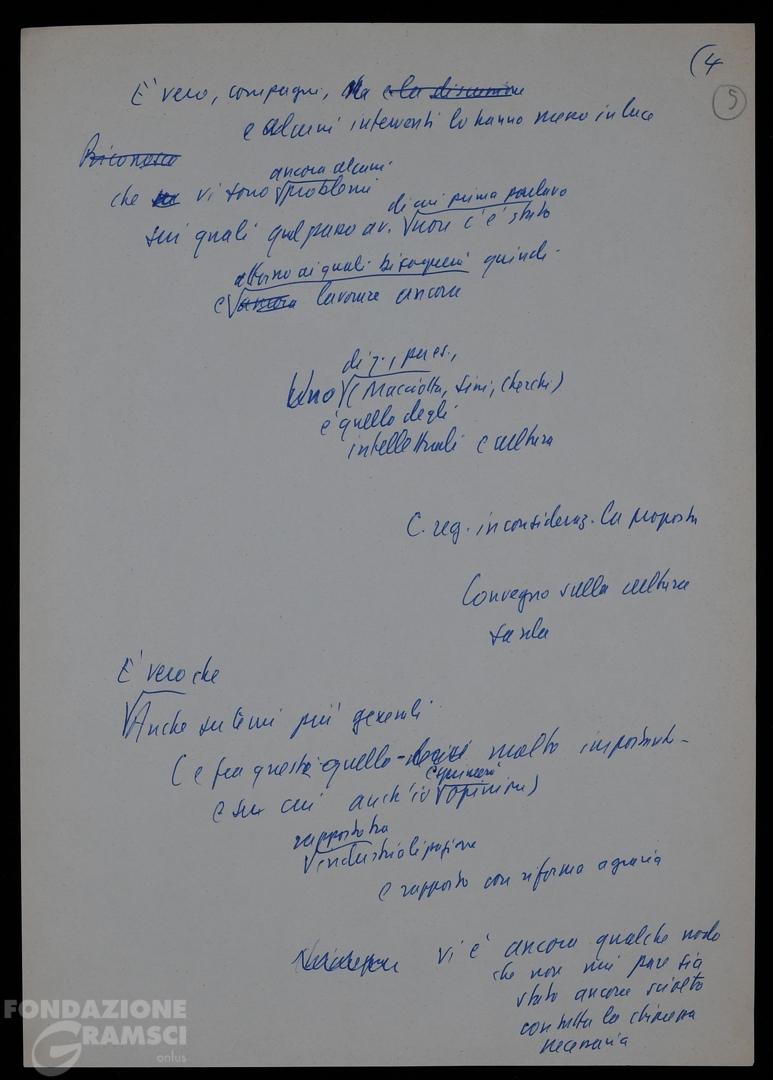 (4
5
È vero, compagni, ma e la discussione
e alcuni interventi lo hanno messo in luce
Riconosco
ancora alcuni
che vi sono problemi
di cui prima parlavo
sui quali quel passo av. non c'è stato
attorno ai quali bisognerà quindi
e ancora lavorare ancora
di q., per es.,
Uno (Macciotta, Sini, Cherchi)
è quello degli
intellettuali e cultura
C. reg. in consideraz. la proposta
Convegno sulla cultura
sarda
È vero che
Anche su temi più generali
(e fra questi quello molto important-
esprimerei
e su cui anch'io opinioni)
rapporto tra
industrializzazione
e rapporto con riforma agraria
vi è ancora qualche nodo
che non mi pare sia
stato ancora sciolto
con tutta la chiarezza
necessaria
FONDAZIONE
GRAMSCI
onlus